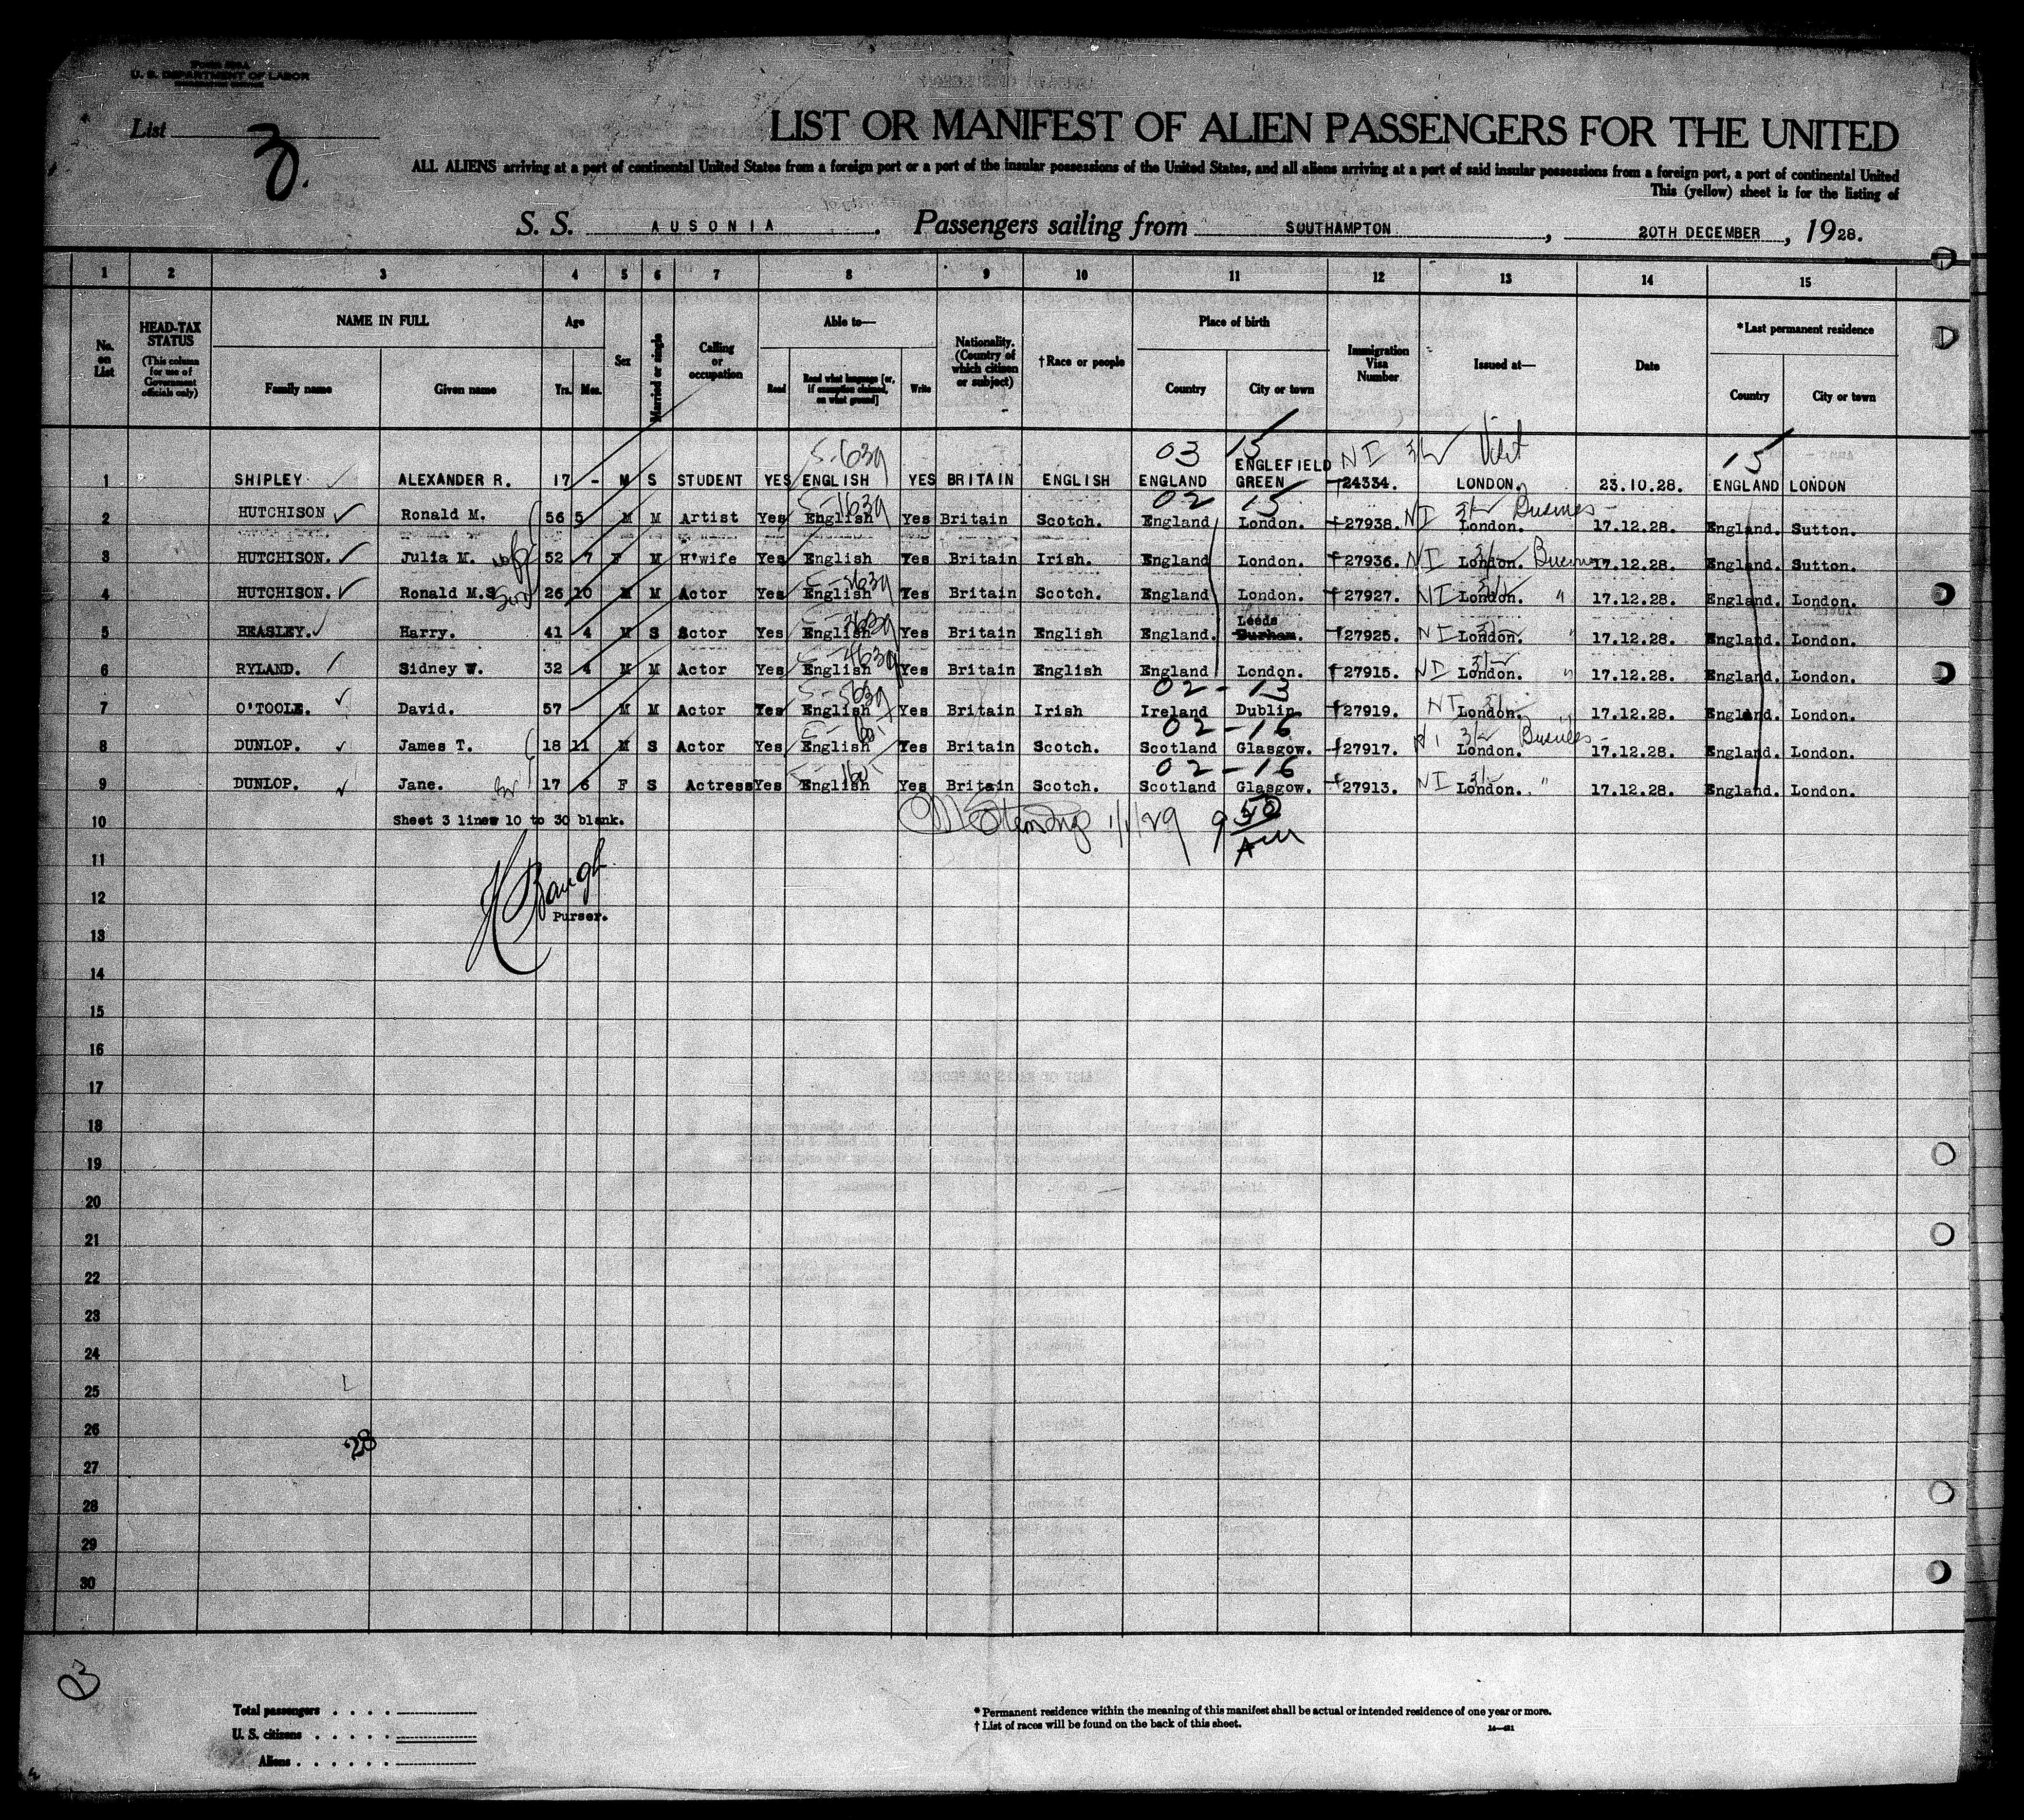 U. S. DEPARTMENT OF LABOR
List 3.
LIST OR MANIFEST OF ALIEN PASSENGERS FOR THE UNITED
ALL ALIENS arriving at a port of continental United States from a foreign port or a port of the insular possessions of the United States, and all aliens arriving at a port of said insular possessions from a foreign port, a port of continental United
This (yellow) sheet is for the listing of
S. S. AUSONIA. Passengers sailing from SOUTHAMPTON, 20TH DECEMBER, 1928.
1 2 3 4 5 6 7 8 9 10 11 12 13 14 15
No. on List
HEAD-TAX STATUS (This column for use of Government officials only)
NAME IN FULL
Family name
Given name
Age
Yrs. Mos.
Sex
Married or single
Calling or occupation
Able to—
Read
Read what language [or, if exemption claimed, on what ground]
Write
Nationality. (Country of which citizen or subject)
†Race or people
Place of birth
Country
City or town
Immigration Visa Number
Issued at—
Date
*Last permanent residence
Country
City or town
5-639 03 15 NI Visit 15
1 SHIPLEY ALEXANDER R. 17 - M S STUDENT YES ENGLISH YES BRITAIN ENGLISH ENGLAND ENGLEFIELD GREEN 24334. LONDON. 23.10.28. ENGLAND LONDON
02 15
2 HUTCHISON Ronald M. 56 5 M M Artist Yes English Yes Britain Scotch. England London. 27938. NI London. Business 17.12.28. England. Sutton.
3 HUTCHISON. Julia M. wife 52 7 F M H'wife Yes English Yes Britain Irish. England London. 27936. NI London. Business 17.12.28. England. Sutton.
4 HUTCHISON. Ronald M.S. son 26 10 M M Actor Yes English Yes Britain Scotch. England London. 27927. NI London. " 17.12.28. England. London.
5 BEASLEY. Harry. 41 4 M S Sctor Yes English Yes Britain English England. Leeds Durham. 27925. NI London. " 17.12.28. England. London.
6 RYLAND. Sidney W. 32 4 M M Actor Yes English Yes Britain English England London. 27915. NI London. " 17.12.28. England. London.
02-13
7 O'TOOLE. David. 57 M M Actor Yes English Yes Britain Irish Ireland Dublin. 27919. NI London. " 17.12.28. England. London.
02-16
8 DUNLOP. James T. 18 11 M S Actor Yes English Yes Britain Scotch. Scotland Glasgow. 27917. NI London. Business 17.12.28. England. London.
02-16
9 DUNLOP. Jane. 17 6 F S Actress Yes English Yes Britain Scotch. Scotland Glasgow. 27913. NI London. " 17.12.28. England. London.
10 Sheet 3 lines 10 to 30 blank. 1/1/29 9 50 AM
11
12 Baugh Purser.
13
14
15
16
17
18
19
20
21
22
23
24
25
26 28
27
28
29
30
03
Total passengers
U. S. citizens
Aliens
* Permanent residence within the meaning of this manifest shall be actual or intended residence of one year or more.
† List of races will be found on the back of this sheet.